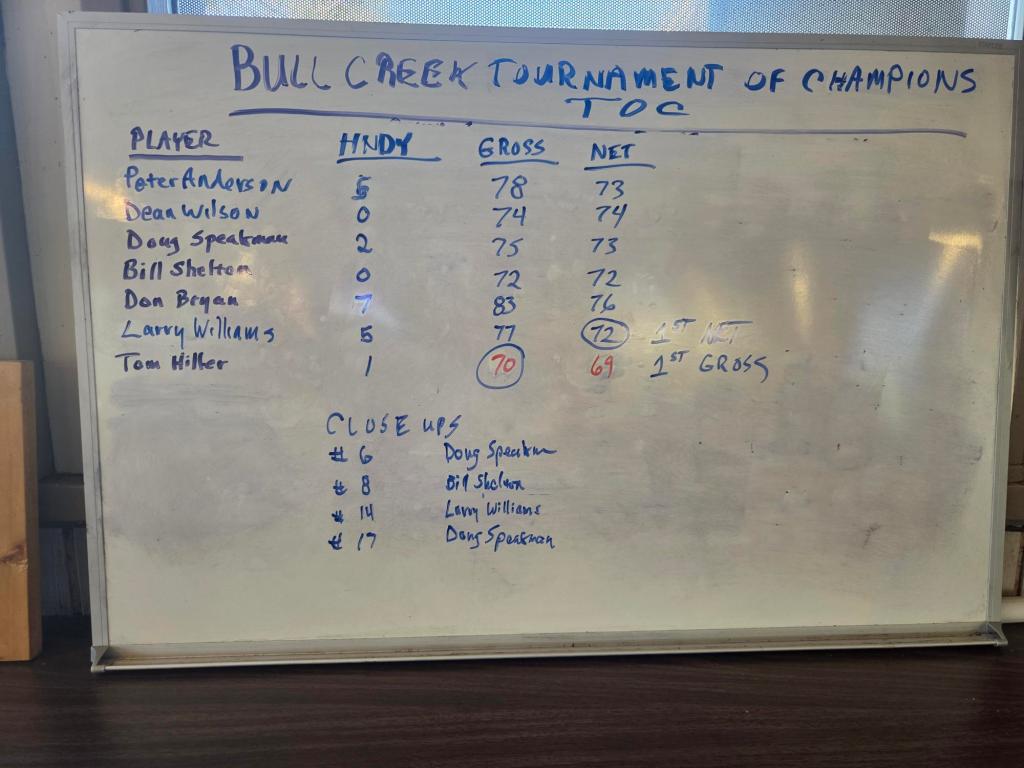 BULL CREEK TOURNAMENT OF CHAMPIONS
TOC
PLAYER HNDY GROSS NET
Peter Anderson 5 78 73
Dean Wilson 0 74 74
Doug Speakman 2 75 73
Bill Shelton 0 72 72
Don Bryan 7 83 76
Larry Williams 5 77 72 1ST NET
Tom Hiller 1 70 69 1ST GROSS
CLOSE UPS
# 6 Doug Speakman
# 8 Bill Shelton
# 14 Larry Williams
# 17 Doug Speakman